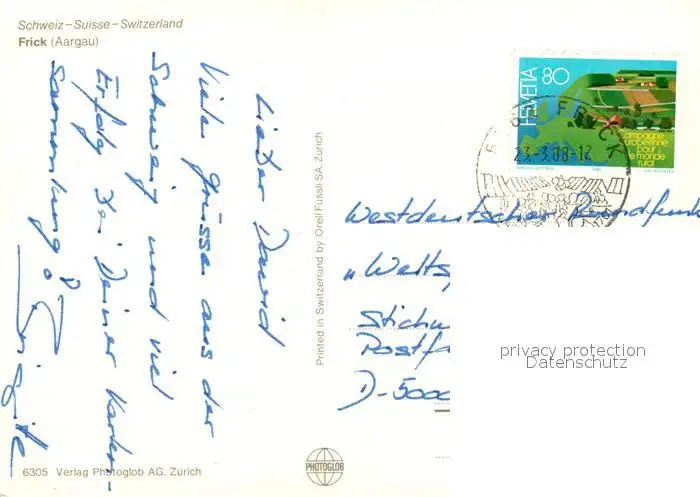 Schweiz – Suisse – Switzerland
Frick (Aargau)
Lieber David
Viele Grüsse aus der
Schweiz und viel
Erfolg bei Deiner Karten-
sammlung!
Printed in Switzerland by Orell Füssli SA, Zürich
HELVETIA 80
Campagne
européenne
pour
le monde
rural
FRICK
23.-3.88-12
Westdeutscher Rundfunk
"Welts
Stichw
Postfa
D-5000
privacy protection
Datenschutz
6305 Verlag Photoglob AG, Zürich
PHOTOGLOB